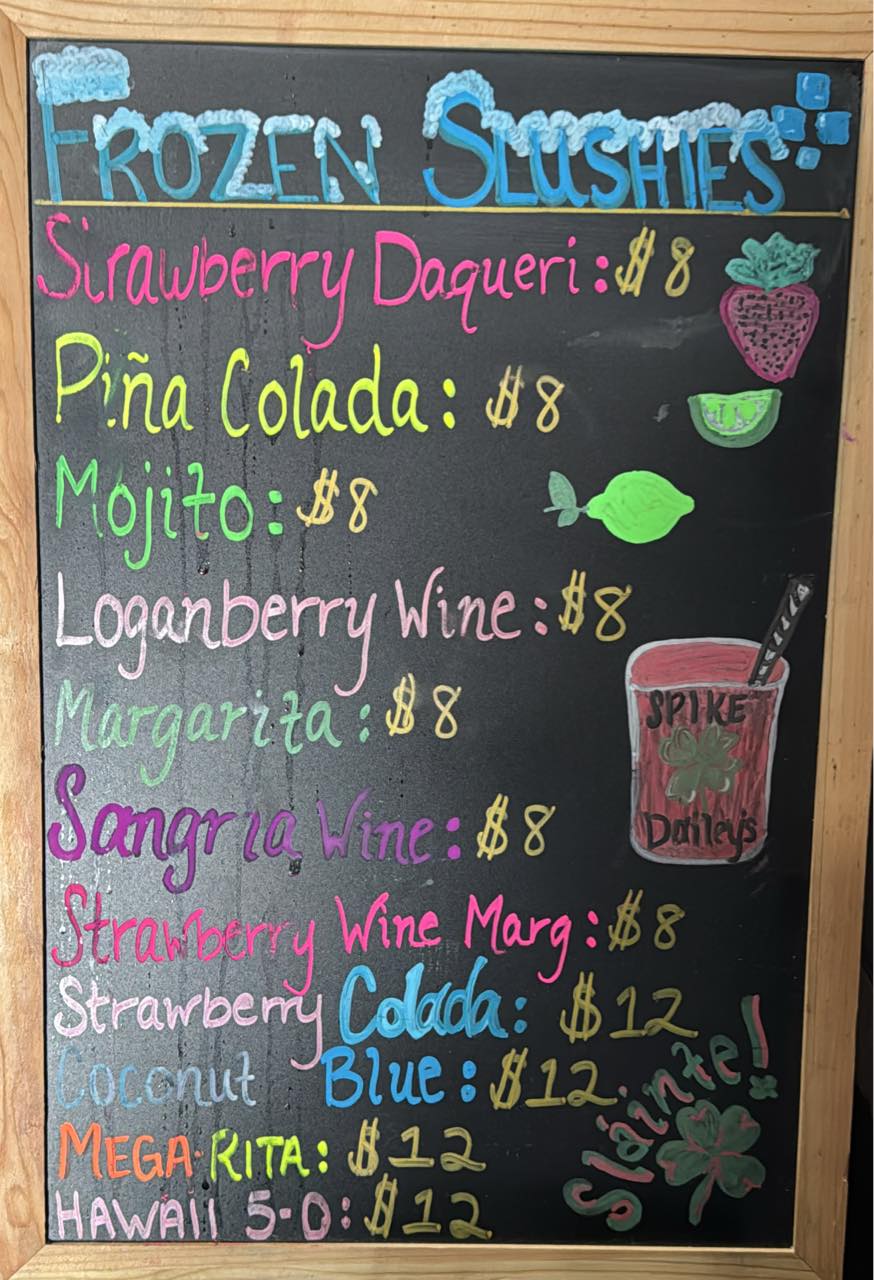 FROZEN SLUSHIES
Strawberry Daqueri: $8
Piña Colada: $8
Mojito: $8
Loganberry Wine: $8
Margarita: $8
Sangria Wine: $8
Strawberry Wine Marg: $8
Strawberry Colada: $12
Coconut Blue: $12
MEGA-RITA: $12
HAWAII 5-0: $12
SPIKE
Dailey's
Sláinte!